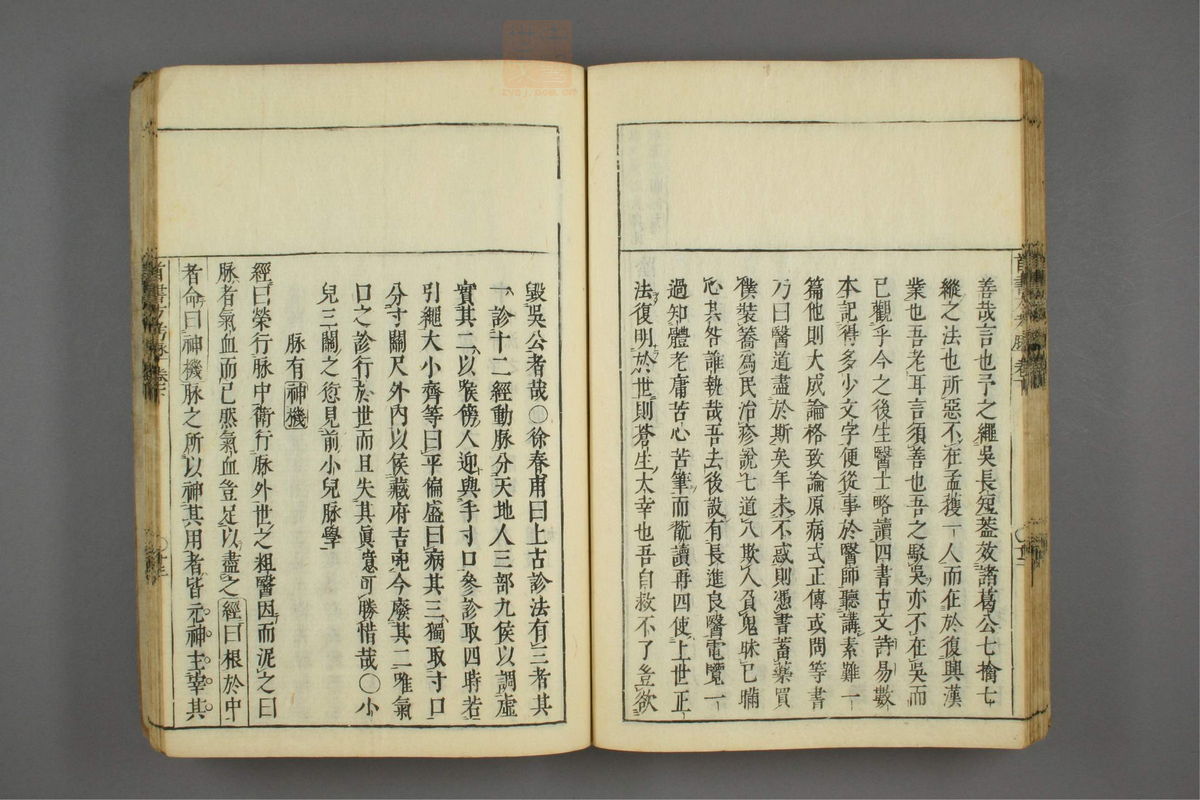 善哉言也予之繩吳長短葢效諸葛公七擒七
縱之法也所惡不在孟獲一人而在於復興漢
業也吾老耳言須善也吾之駁吳亦不在吳而
已觀乎今之後生醫士略讀四書古文詩易數
本記得多少文字便從事於醫師聽講素難一
篇他則大成論格致論原病式正傳或問等書
乃曰醫道盡於斯矣年未不惑則憑書蓄藥買
僕裝蕎為民治疹說七道八欺人負鬼昧已瞞
心其咎誰執哉吾去後設有長進良醫電覽一
過知體老庸苦心苦筆而翫讀再四使上世正
法復明於世則蒼生大幸也吾自救不了豈欲
毀吳公者哉○徐春甫曰上古診法有三者其
一診十二經動脉分天地人三部九侯以調虛
實其二以喉傍人迎與手寸口參診取四時若
引繩大小齊等曰平偏盛曰病其三獨取寸口
分寸關尺外內以侯藏府吉兇今廢其二唯氣
口之診行於世而且失其眞意可勝惜哉○小
兒三關之愆見前小兒脉學
脉有神機
經曰榮行脉中衛行脉外世之粗醫因而泥之曰
脉者氣血而已然氣血豈足以盡之經曰根於中
者命曰神機脉之所以神其用者皆元神主宰其